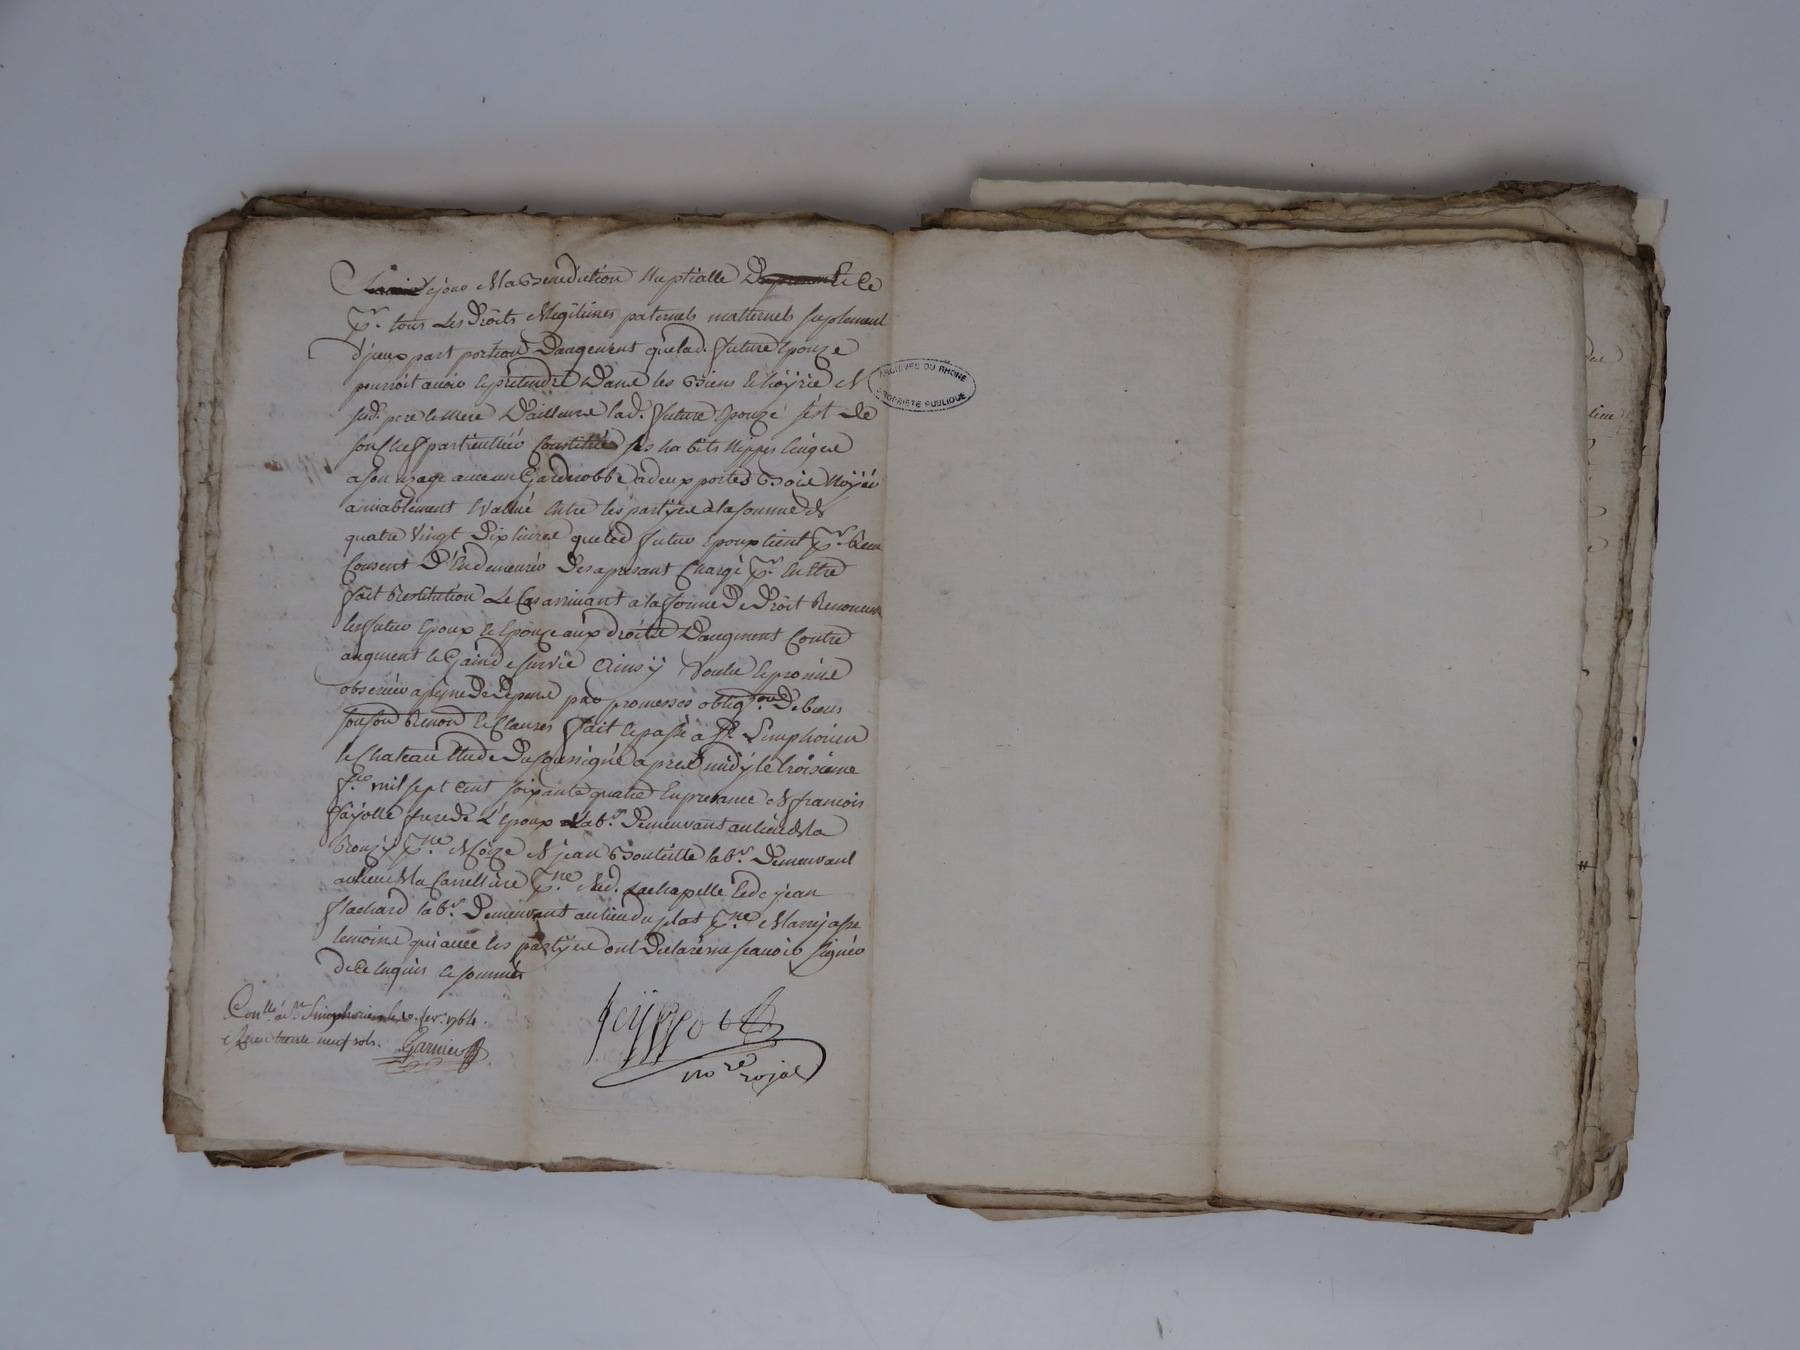 lejour de la Benediction Nuptialle Et ce
pr. tous les Droits Legitimes paternels matternels suplement
d'jceux part portion Daugement quelad. future Epouze
pourroit avoir Et pretendre Dans les Biens Et hoyrie de
sesd. pere Et Mere D'ailleurs lad. future Epouze s'est de
son chef particullier Constitué ses habits Nippes linges
a son usage avec un Garderobbe a deux portes Bois Noyer
amiablement Evalué Entre les partyes a la somme de
quatre Vingt Dix livres que led. futur Epoux tient pr. Recu
Consent D'En demeurer Des apresant Chargé pr. En Etre
fait Restitution Le Cas arrivant a la forme De Droit Renoncent
les futurs Epoux Et Epouze aux droits Daugment Contre
augment Et Gain de survie Ainsy Voulu Et promis
observer a peyne De Depens par promesses obligaon. De biens
Renon Et Clauses fait Et passé a St. Simphorien
le Chateau Etude Du soussigné apres midy le troisieme
fer. mil sept cent soixante quatre En presance de francois
fayolle frere de L'Epoux Lab.r Demeurant au lieu de la
psse. de jean Bouteille lab.r Demeurant
au lieu de la psse. de Lachapelle Et de jean
flachard lab.r Demeurant au lieu du plat psse. de Marcjasse
temoins qui avec les partyes ont Declaré ne scavoir signer
de Ce Enquis Et sommés
Conllé. a St. Simphorien le 10. fevr. 1764.
Recu trente neuf sols. Garnier
nore royal
ARCHIVES DU RHÔNE
PROPRIÉTÉ PUBLIQUE